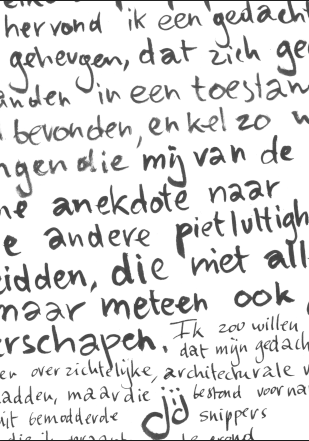 hervond ik een gedacht
geheugen, dat zich ge
anden in een toestan
bevonden, enkel zo
ngen die mij van de
ne anekdote naar
e andere pietluttigh
eidden, die niet all
maar meteen ook
erschapen. Ik zou willen
dat mijn gedach
en overzichtelijke, architecturale v
ladden, maar die jij bestond voornam
uit bemodderde snippers